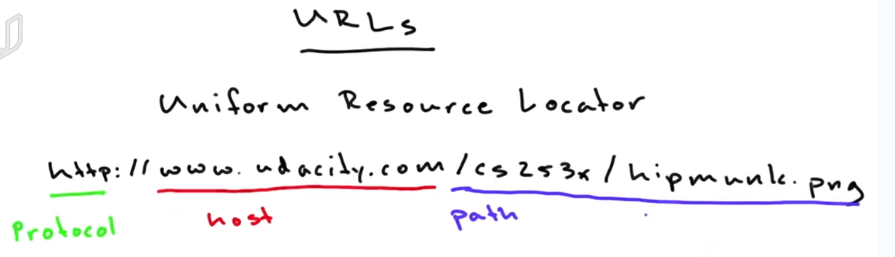 URLs
Uniform Resource Locator
http://www.udacity.com/cs253x/hipmunk.png
Protocol host path